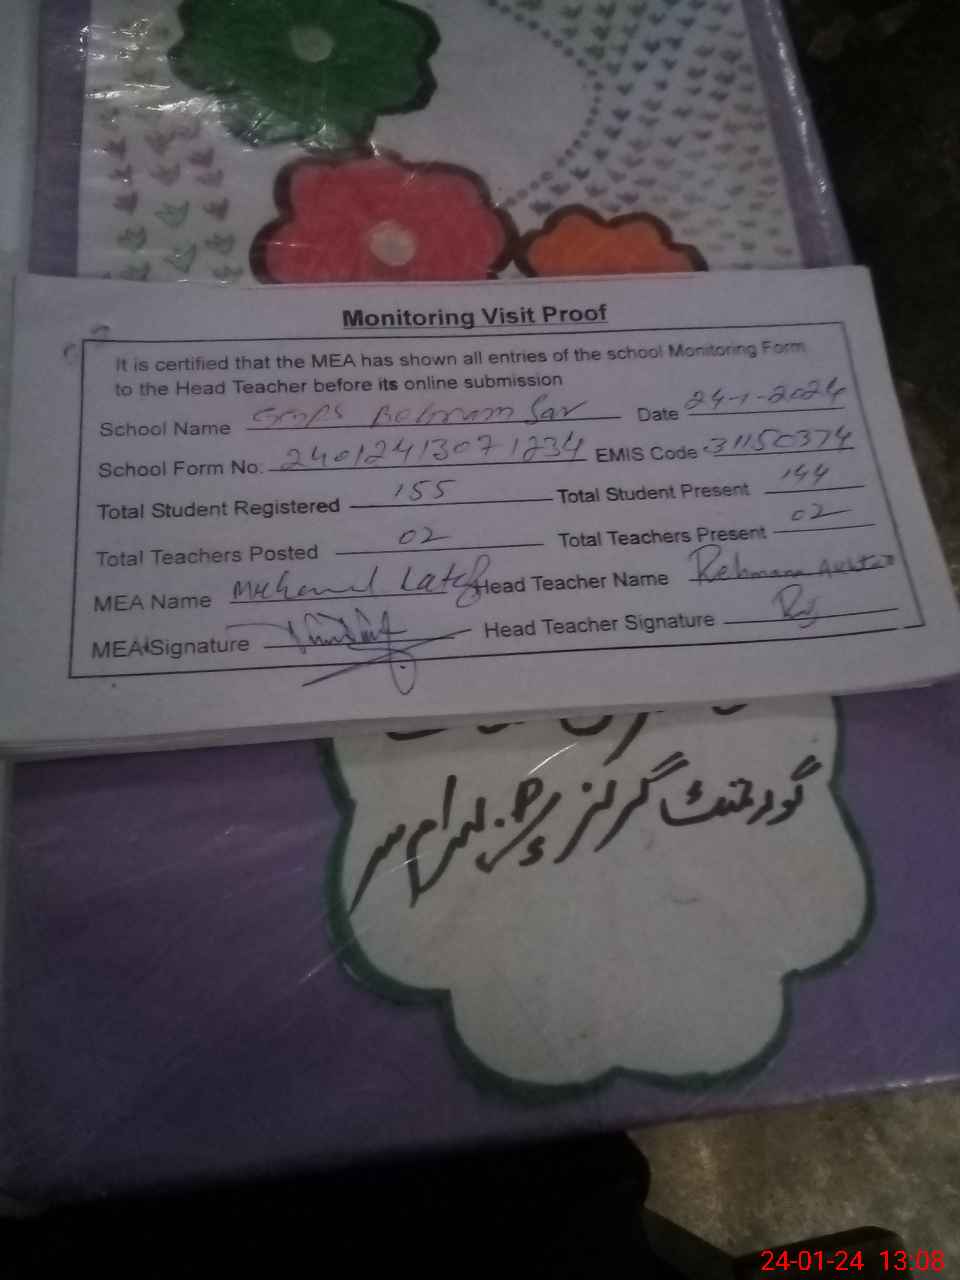 Monitoring Visit Proof
It is certified that the MEA has shown all entries of the school Monitoring Form
to the Head Teacher before its online submission
School Name GGPS Behram Sar Date 24-1-2024
School Form No: 2401241307 1234 EMIS Code 31150374
Total Student Registered 155 Total Student Present 144
Total Teachers Posted 02 Total Teachers Present 02
MEA Name Muhammad Latif Head Teacher Name Rehmana Akhtar
MEA Signature Head Teacher Signature
گورنمنٹ گرلز پرائمری بہرام سر
24-01-24 13:08